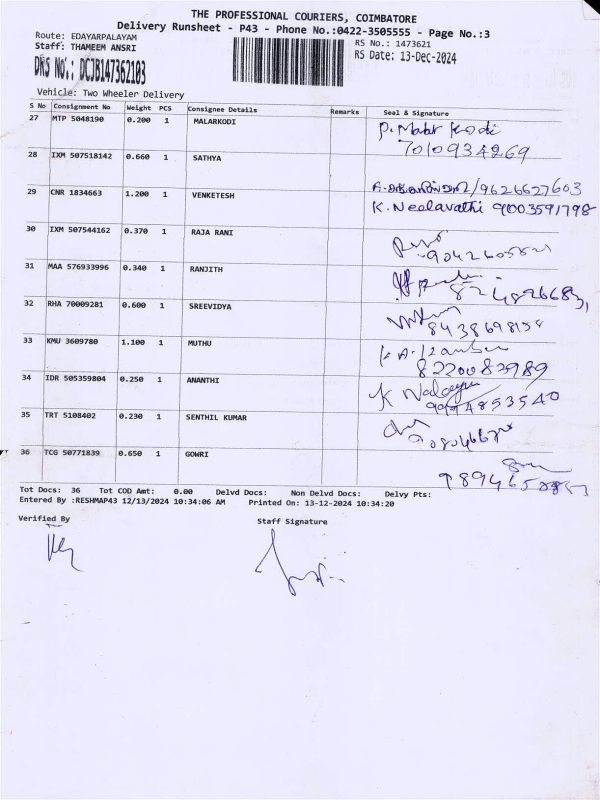 THE PROFESSIONAL COURIERS, COIMBATORE
Delivery Runsheet - P43 - Phone No.:0422-3505555 - Page No.:3
Route: EDAYARPALAYAM
RS No.: 1473621
Staff: THAMEEM ANSRI
RS Date: 13-Dec-2024
DRS No.: DCJB147362103
Vehicle: Two Wheeler Delivery
S No Consignment No Weight PCS Consignee Details Remarks Seal & Signature
27 MTP 5048190 0.200 1 MALARKODI
7010934269
28 IXM 507518142 0.660 1 SATHYA
/9626627603
29 CNR 1834663 1.200 1 VENKETESH K. Neelavathi 9003591798
30 IXM 507544162 0.370 1 RAJA RANI
31 MAA 576933996 0.340 1 RANJITH
32 RHA 70009281 0.600 1 SREEVIDYA
8438698158
33 KMU 3609780 1.100 1 MUTHU
8220083989
34 IDR 505359804 0.250 1 ANANTHI
9994853540
35 TRT 5108402 0.230 1 SENTHIL KUMAR
36 TCG 50771839 0.650 1 GOWRI
Tot Docs: 36 Tot COD Amt: 0.00 Delvd Docs: Non Delvd Docs: Delvy Pts:
Entered By :RESHMAP43 12/13/2024 10:34:06 AM Printed On: 13-12-2024 10:34:20
Verified By
Staff Signature